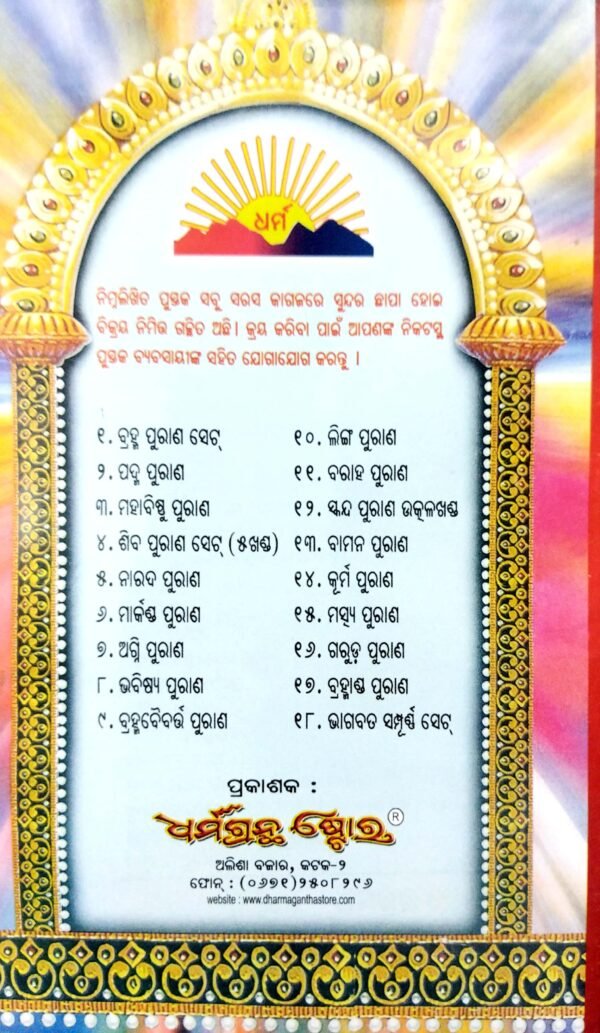 ଧର୍ମ
ନିମ୍ନଲିଖିତ ପୁସ୍ତକ ସବୁ ସରସ କାଗଜରେ ସୁନ୍ଦର ଛାପା ହୋଇ
ବିକ୍ରୟ ନିମିତ୍ତ ଗଚ୍ଛିତ ଅଛି। କ୍ରୟ କରିବା ପାଇଁ ଆପଣଙ୍କ ନିକଟସ୍ଥ
ପୁସ୍ତକ ବ୍ୟବସାୟୀଙ୍କ ସହିତ ଯୋଗାଯୋଗ କରନ୍ତୁ ।
୧. ବ୍ରହ୍ମ ପୁରାଣ ସେଟ୍
୨. ପଦ୍ମ ପୁରାଣ
୩. ମହାବିଷ୍ଣୁ ପୁରାଣ
୪. ଶିବ ପୁରାଣ ସେଟ୍ (୫ଖଣ୍ଡ)
୫. ନାରଦ ପୁରାଣ
୬. ମାର୍କଣ୍ଡ ପୁରାଣ
୭. ଅଗ୍ନି ପୁରାଣ
୮. ଭବିଷ୍ୟ ପୁରାଣ
୯. ବ୍ରହ୍ମବୈବର୍ତ୍ତ ପୁରାଣ
୧୦. ଲିଙ୍ଗ ପୁରାଣ
୧୧. ବରାହ ପୁରାଣ
୧୨. ସ୍କନ୍ଦ ପୁରାଣ ଉତ୍କଳଖଣ୍ଡ
୧୩. ବାମନ ପୁରାଣ
୧୪. କୂର୍ମ ପୁରାଣ
୧୫. ମତ୍ସ୍ୟ ପୁରାଣ
୧୬. ଗରୁଡ଼ ପୁରାଣ
୧୭. ବ୍ରହ୍ମାଣ୍ଡ ପୁରାଣ
୧୮. ଭାଗବତ ସମ୍ପୂର୍ଣ୍ଣ ସେଟ୍
ପ୍ରକାଶକ :
ଧର୍ମଗ୍ରନ୍ଥ ଷ୍ଟୋର ®
ଅଲିଶା ବଜାର, କଟକ-୨
ଫୋନ୍ : (୦୬୭୧)୨୫୦୮୨୯୬
website : www.dharmaganthastore.com